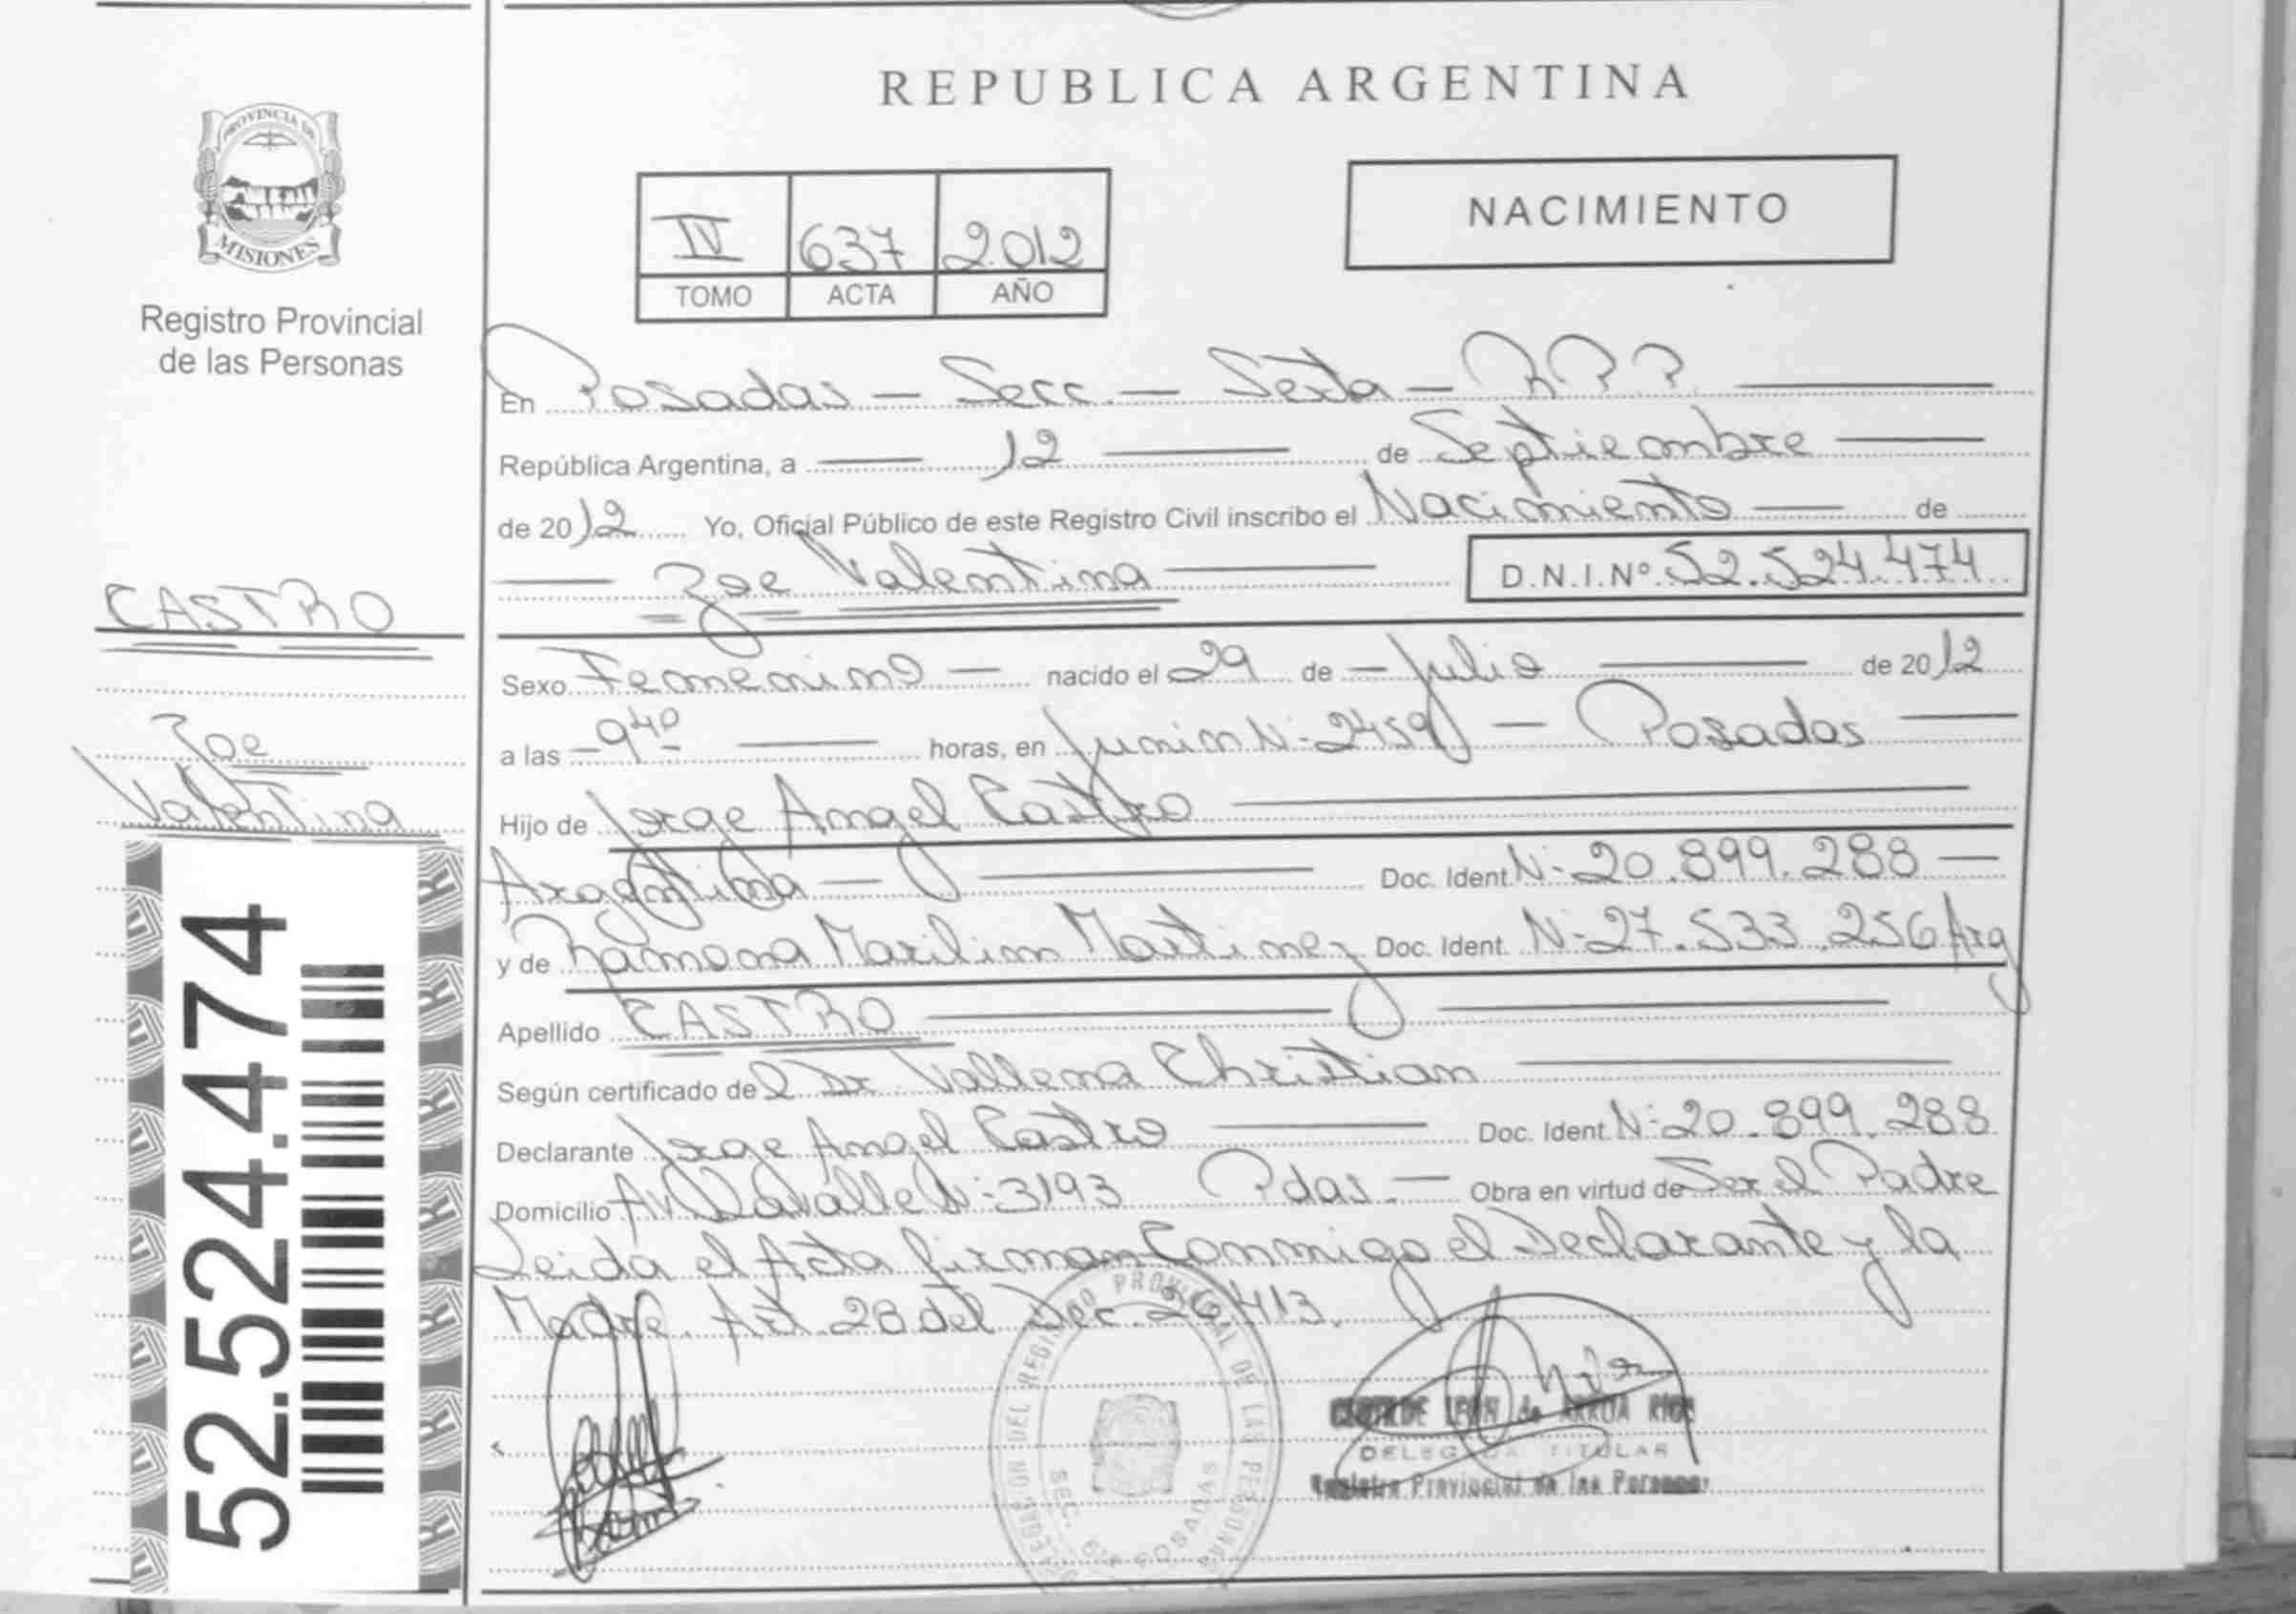 REPUBLICA ARGENTINA
PROVINCIA DE
MISIONES
Registro Provincial
de las Personas
IV 637 2012
TOMO ACTA AÑO
NACIMIENTO
En Posadas — Secc. — Sexta — R P P
República Argentina, a 12 de Septiembre
de 2012 Yo, Oficial Público de este Registro Civil inscribo el Nacimiento de
Zoe Valentina D.N.I.Nº 52.524.474
CASTRO
Zoe
Valentina
52.524.474
Sexo Femenino nacido el 29 de Julio de 2012
a las 9 40 horas, en Junin N: 2459 — Posadas
Hijo de Jorge Angel Castro
Argentina Doc. Ident. N: 20.899.288
y de Ramona Marilin Martinez Doc. Ident. N: 27.533.256 Arg
Apellido CASTRO
Según certificado del Dr. Christian
Declarante Jorge Angel Castro Doc. Ident. N: 20.899.288
Domicilio Av Lavalle N: 3193 Pdas. — Obra en virtud de Ser el Padre
Leida el Acta firman Conmigo el Declarante y la
Madre. Art. 28 del Dec. 26.413.
PROVINCIAL DE LAS PERSONAS
SEC. 6ta POSADAS
de ARRUA RIOS
DELEGADA TITULAR
Registro Provincial de las Personas